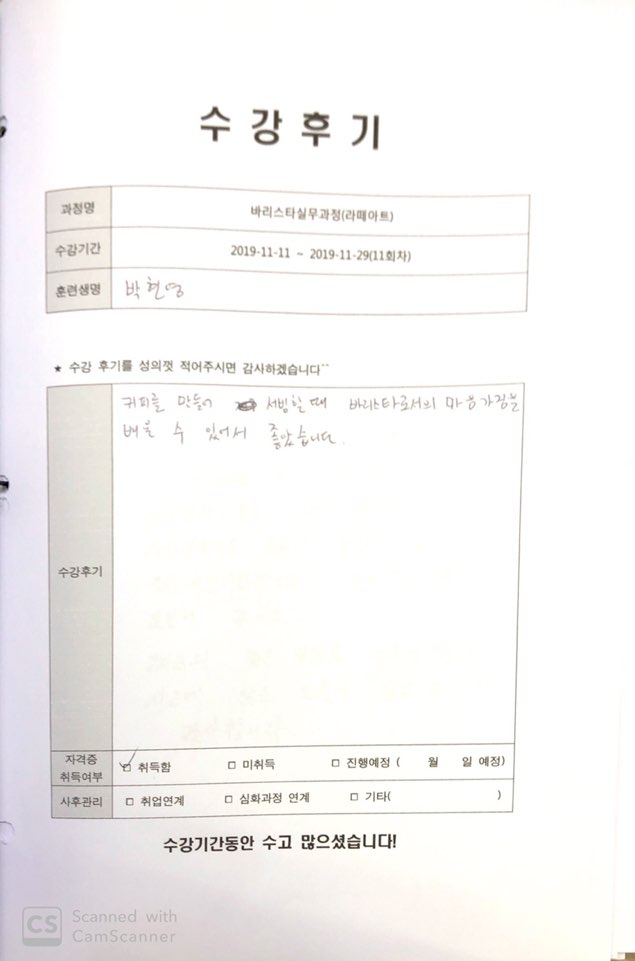 수강후기
과정명 바리스타실무과정(라떼아트)
수강기간 2019-11-11 ~ 2019-11-29(11회차)
훈련생명 박현영
★ 수강 후기를 성의껏 적어주시면 감사하겠습니다^^
커피를 만들어 서빙할때 바리스타로서의 마음가짐을
배울 수 있어서 좋았습니다.
수강후기
자격증
취득여부
☑ 취득함 □ 미취득 □ 진행예정 ( 월 일 예정)
사후관리 □ 취업연계 □ 심화과정 연계 □ 기타( )
수강기간동안 수고 많으셨습니다!
CS Scanned with
CamScanner